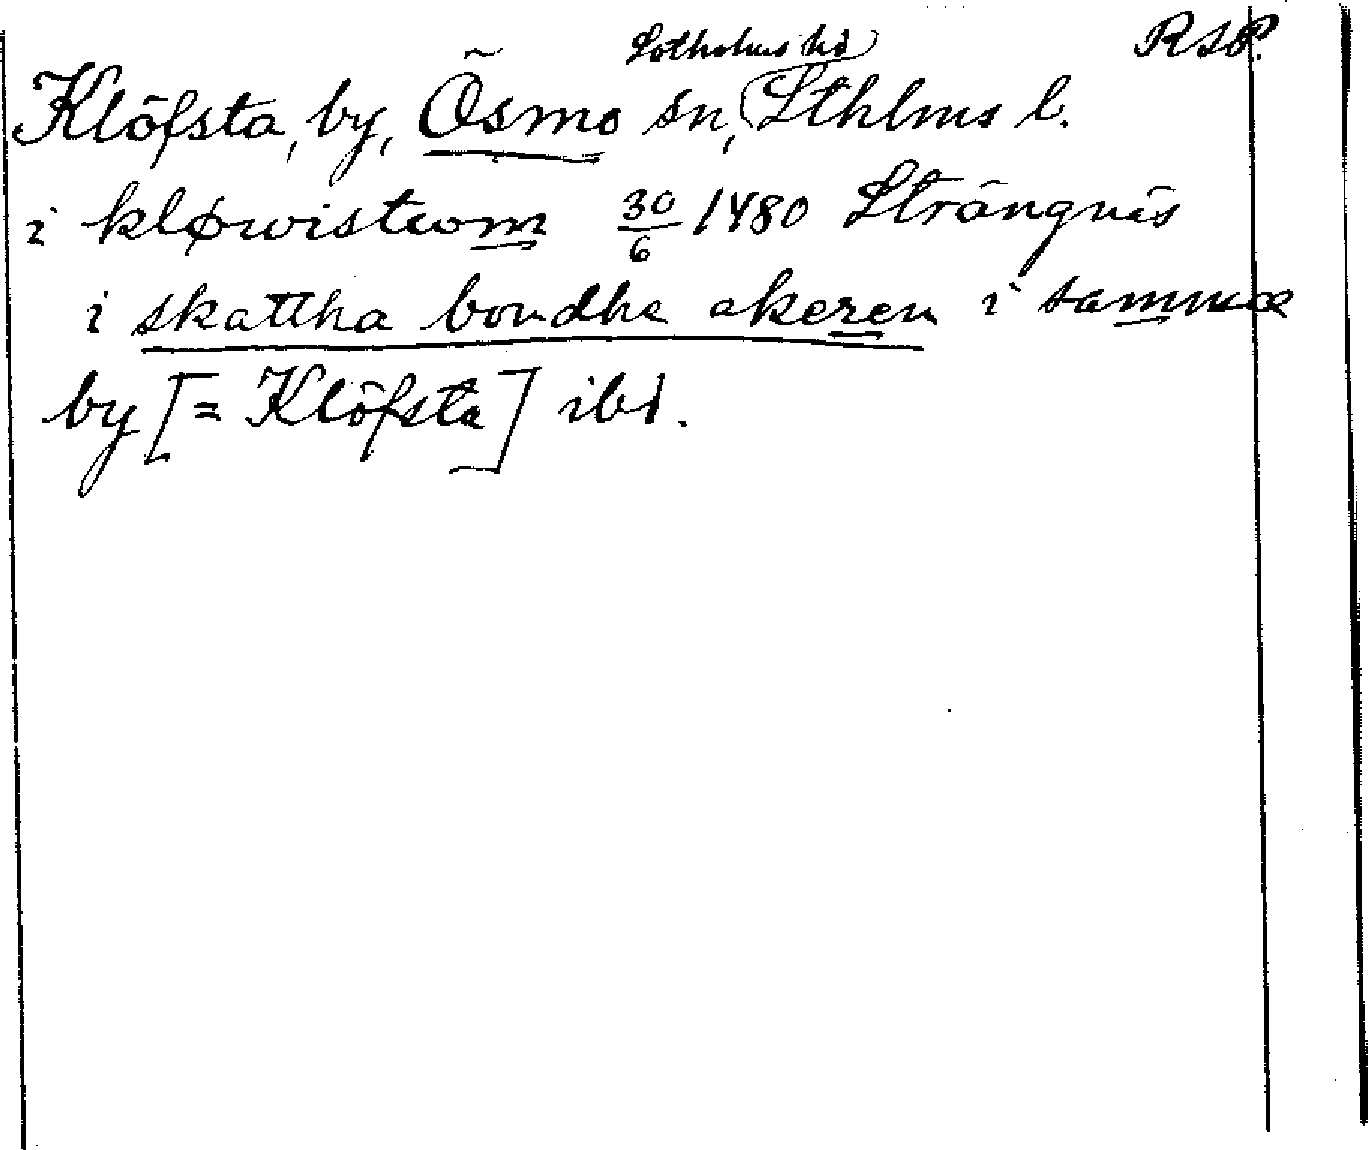 Sotholms hd RAP.
Klöfsta, by, Ösmo sn, Sthlms l.
i kløwistwom 30/6 1480 Strängnäs
i skattha bondha akeren i sammæ
by [= Klöfsta] ibd.